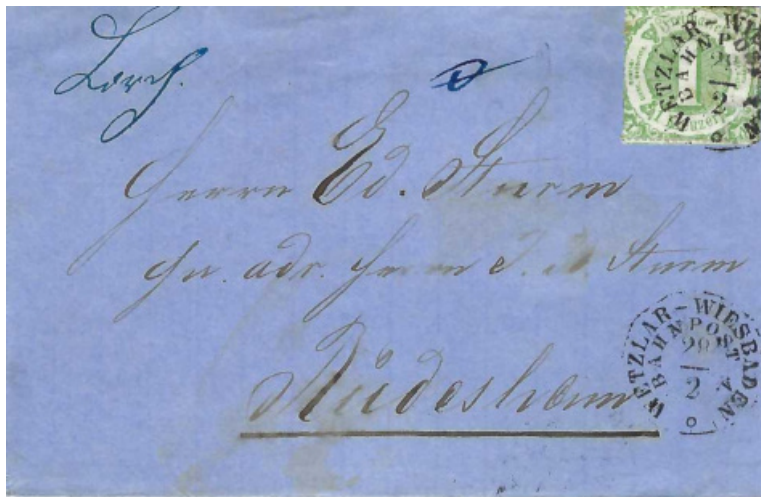 Lorch.
WETZLAR-WIESBADEN
BAHNPOST
1
2
Herrn Ed. Sturm
adr. Herrn J. Sturm
Rüdesheim
WETZLAR-WIESBADEN
BAHNPOST
29
2